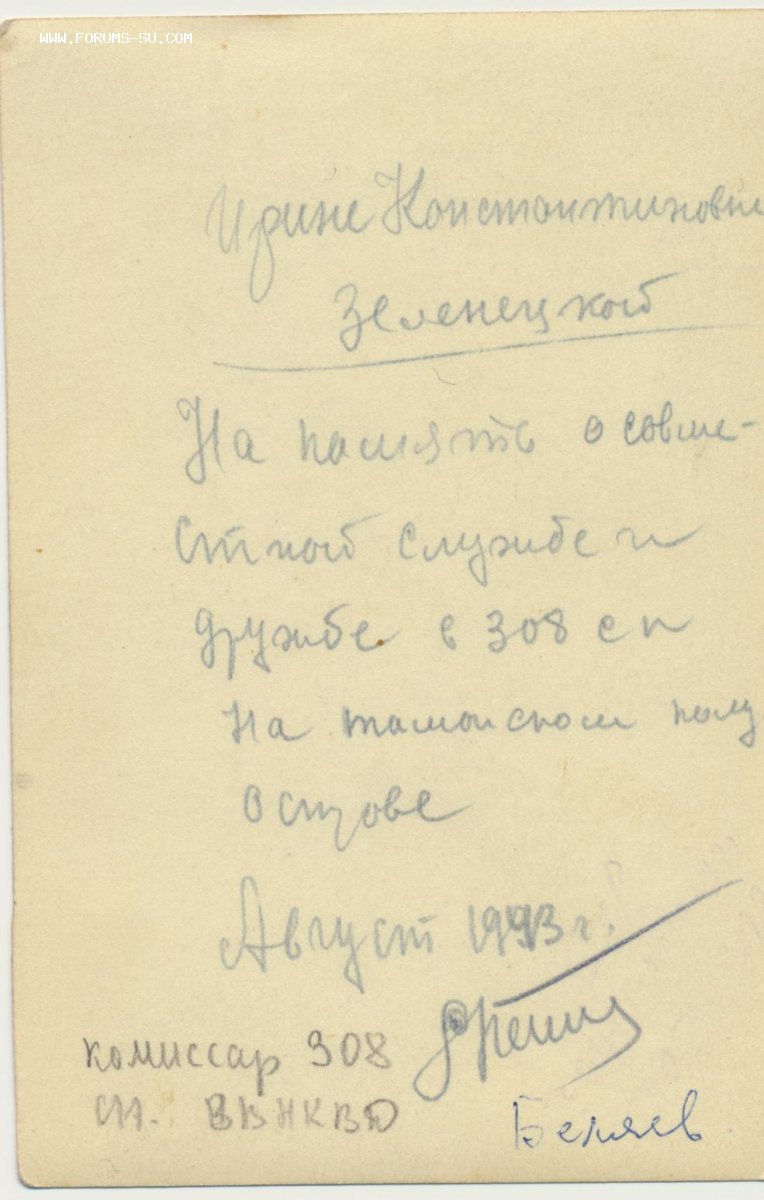 WWW.FORUMS-SU.COM
Ирине Константиновне
Зеленецкой
На память о совме-
стной службе и
дружбе в 308 сп
на таманском полу
острове
Август 1943 г.
комиссар 308
сп. ВВНКВД
Беляев